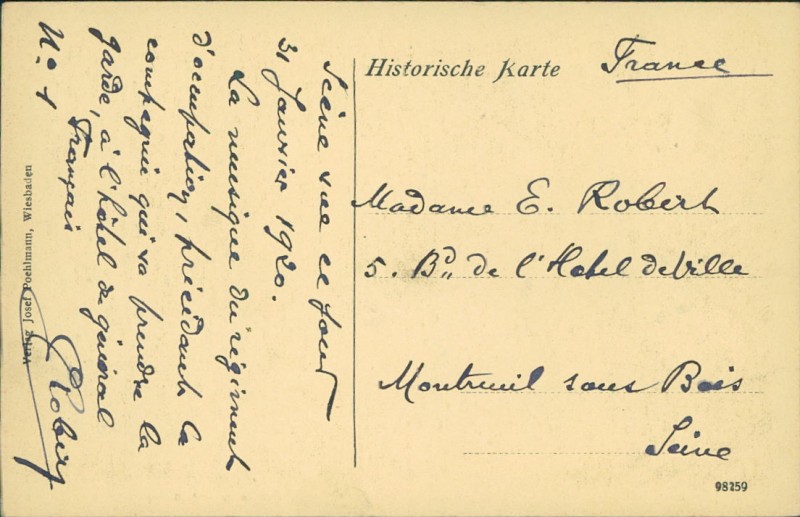 Scène vue ce jour
31 Janvier 1920.
La musique du régiment
d'occupation, précédant la
compagnie qui va prendre la
garde, à l'hôtel du général
Français
N° 1
Robert
Verlag Josef Poehlmann, Wiesbaden
Historische Karte
France
Madame E. Robert
5. Bd de l'Hotel de Ville
Montreuil sous Bois
Seine
98259